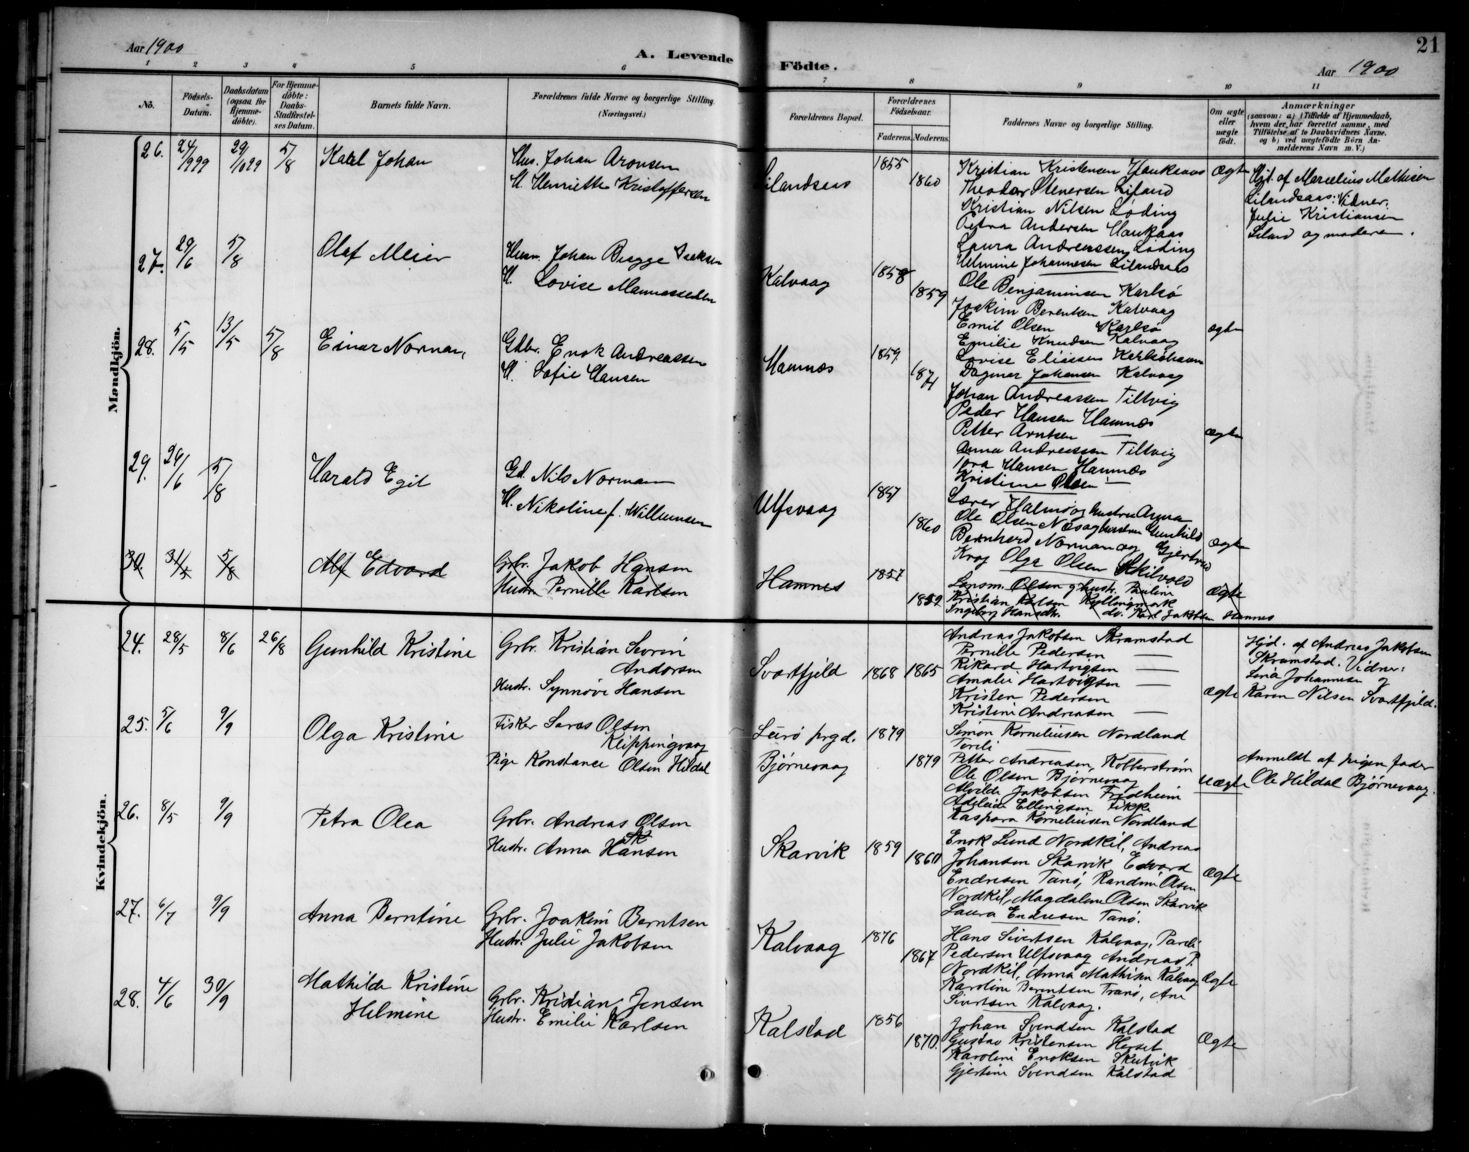 Aar 1900
A. Levende
Födte.
Aar 1900
21
1 2 3 4 5 6 7 8 9 10 11
No.
Födsels-Datum.
Daabsdatum (ogsaa for Hjemmedöbte).
For Hjemmedöbte: Daabs-Stadfæstelses Datum.
Barnets fulde Navn.
Forældrenes fulde Navne og borgerlige Stilling.
(Næringsvei.)
Forældrenes Bopæl.
Forældrenes Födselsaar.
Faderens. Moderens.
Faddernes Navne og borgerlige Stilling.
Om ægte eller uægte födt.
Anmærkninger
Mandkjön.
26. 24/9 99 29/10 99 5/8 Karl Johan
Hus. Johan Aronsen
H. Henriette Kristoffersen
Lilandsaas 1855 1860
Kristian Kristensen Haukaas
Theodor Stenersen Liland
Kristian Nilsen Løding
Petra Andersen Haukaas
Laura Andreassen Løding
Helmine Johannesen Lilandsaas
Ægte
Hjd. af Marcelius Mathisen
Lilandsaas: Vidner:
Julie Kristiansen
Liland og moderen.
27. 29/6 5/8 Olaf Meier
Husm. Johan Brygge Isaksen
H. Lovise Mannassedtr
Kalvaag 1858 1859
Ole Benjaminsen Karlsø
Joakim Berentsen Kalvaag
Emil Olsen Karlsø
Emilie Knudsen Kalvaag
Lovise Eliesen
Dagmar Johansen Kalvaag
ægte
28. 5/5 13/5 5/8 Einar Norman,
Gdbr. Enok Andreassen
H. Sofie Hansen
Hamnæs 1859 1874
Johan Andreassen Tiltvig
Peder Hansen Hamnæs
Petter Arntsen —
Anna Andreassen Tiltvig
Tora Hansen Hamnæs
Kristine Olsen —
ægte
29. 24/6 5/8 Harald Egil
Gd. Nils Norman
H. Nikoline f. Willumsen
Ulfsvaag 1857 1860
Lærer Halmø og hustru Anna
Ole Olsen Næsag hustru Gunhild
Bernhard Norman og Gjertrud
Krag Olga Olsen Skilvold
ægte
30. 31/ 5/8 Alf Edvard
Grb. Jakob Hansen
Hustr. Pernille Karlsen
Hamnes 1857 1859
Lansm. Olsen og hustr. Pauline
Kristian Karlsen Kyllingmark
Ingeborg Hansdtr. do. Karl Jakobsen Hamnes
Ægte
Kvindekjön.
24. 28/5 8/6 26/8 Gunhild Kristine
Grbr. Kristian Severin
Andorsen
Hustr. Synnøve Hansen
Svartfjeld 1868 1865
Andreas Jakobsen Skramstad
Pernille Pedersen —
Rikard Hartvigsen —
Amalie Hartvigsen —
Kristen Pedersen —
Kristine Andreasen —
ægte
Hjd. af Andreas Jakobsen
Skramstad. Vidner:
Lena Johannesen og
Karen Nilsen Svartfjeld.
25. 5/6 9/9 Olga Kristine
Fisker Olsen
Klippingvaag
Pige Konstance Olsen Hildal
Lurø prgd. 1879
Bjørnevaag 1879
Simon Korneliussen Nordland
Petter Andreasen, Kobberstrøm
Ole Olsen Bjørnevaag
Alvilde Jakobsen Fredheim
Adelaide Ellingsen
Kaspara Korneliussen Nordland
Uægte
Anmeldt af pigens fader
Ole Hildal Bjørnevaag.
26. 8/5 9/9 Petra Olea
Grbr. Andreas Olsen
Hustr. Anna Hansen
Skarvik 1859 1860
Enok Lund Nordkil, Andreas
Johansen Skarvik, Edvard
Endresen Tanø, Randine Olsen
Nordkil, Magdalene Olsen Skarvik
Laura Endresen Tanø.
Ægte
27. 6/7 9/9 Anna Berntine
Grbr. Joakim Berntsen
Hustr. Julie Jakobsen
Kalvaag 1876 1867
Hans Sivertsen Kalvaag,
Pedersen Ulfsvaag Andreas P.
Nordkil, Anna Mathisen Kalvaag
Karoline Berntsen Tranø, Ane
Sivertsen Kalvaag.
Ægte
28. 4/6 30/9 Mathilde Kristine
Helmine
Grbr. Kristian Jensen
Hustr. Emilie Karlsen
Kalstad 1856 1870.
Johan Svendsen Kalstad
Gustav Kristensen Herset
Karoline Enoksen Skutvik
Gjertine Svendsen Kalstad
Ægte